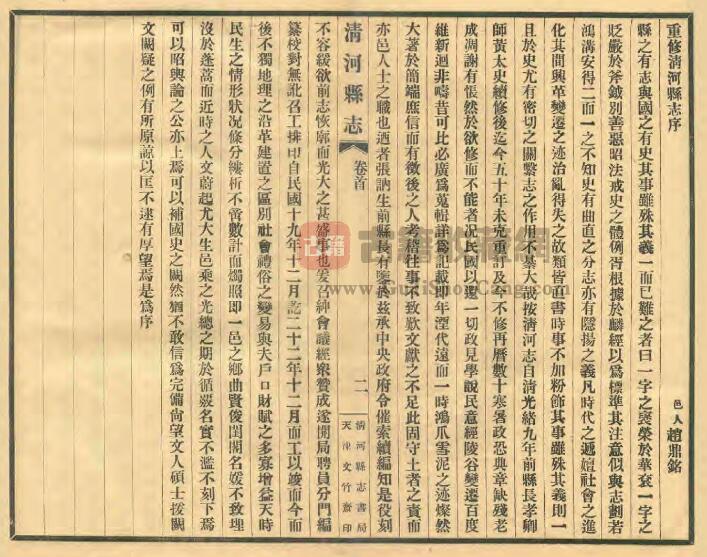 重修清河縣志序
邑人趙鼎銘
縣之有志與國之有史其事雖殊其義一而已難之者曰一字之褒榮於華袞一字之
貶嚴於斧鉞別善惡昭法戒史之體例胥根據於麟經以爲標準其注意似與志劃若
鴻溝安得二而一之不知史有曲直之分志亦有隱揚之義凡時代之遞嬗社會之進
化其間興革變遷之迹治亂得失之故類皆直書時事不加粉飾其事雖殊其義則一
且於史尤有密切之關繫志之作用不綦大哉按清河志自清光緒九年前縣長李卿
師黃太史續修後迄今五十年未克重訂及今不修再曆數十寒暑政恐典章缺殘老
成凋謝有悵然於欲修而不能者況民國以還一切政見學說民意經陵谷變遷百度
維新迥非疇昔可比必廣爲蒐輯詳爲記載即年湮代遠而一時鴻爪雪泥之迹燦然
大著於簡端庶信而有徵後之人考稽往事不致歎文獻之不足此固守土者之責而
亦邑人士之職也迺者張訥生前縣長有鑒於茲承中央政府令催索續編知是役刻
清河縣志
卷首
二
清河縣志書局
天津文竹齋印
不容緩欲前志恢廓而光大之甚盛事也爰召紳會議經衆贊成遂開局聘員分門編
纂校對無訛召工排印自民國十九年十二月訖二十二年十二月而工以竣而今而
後不獨地理之沿革建置之區別社會禮俗之變易與夫戶口財賦之多寡增益天時
民生之情形狀況條分縷析不啻數計而燭照即一邑之鄉曲賢俊閨閫名媛不致埋
沒於蓬蒿而近時之人文蔚起尤大生邑乘之光總之期於循覈名實不濫不刻下焉
可以昭輿論之公亦上焉可以補國史之闕然猶不敢信爲完備尙望文人碩士援闕
文闕疑之例有所原諒以匡不逮有厚望焉是爲序
古籍
古籍收藏網
www.GuJiShouCang.com